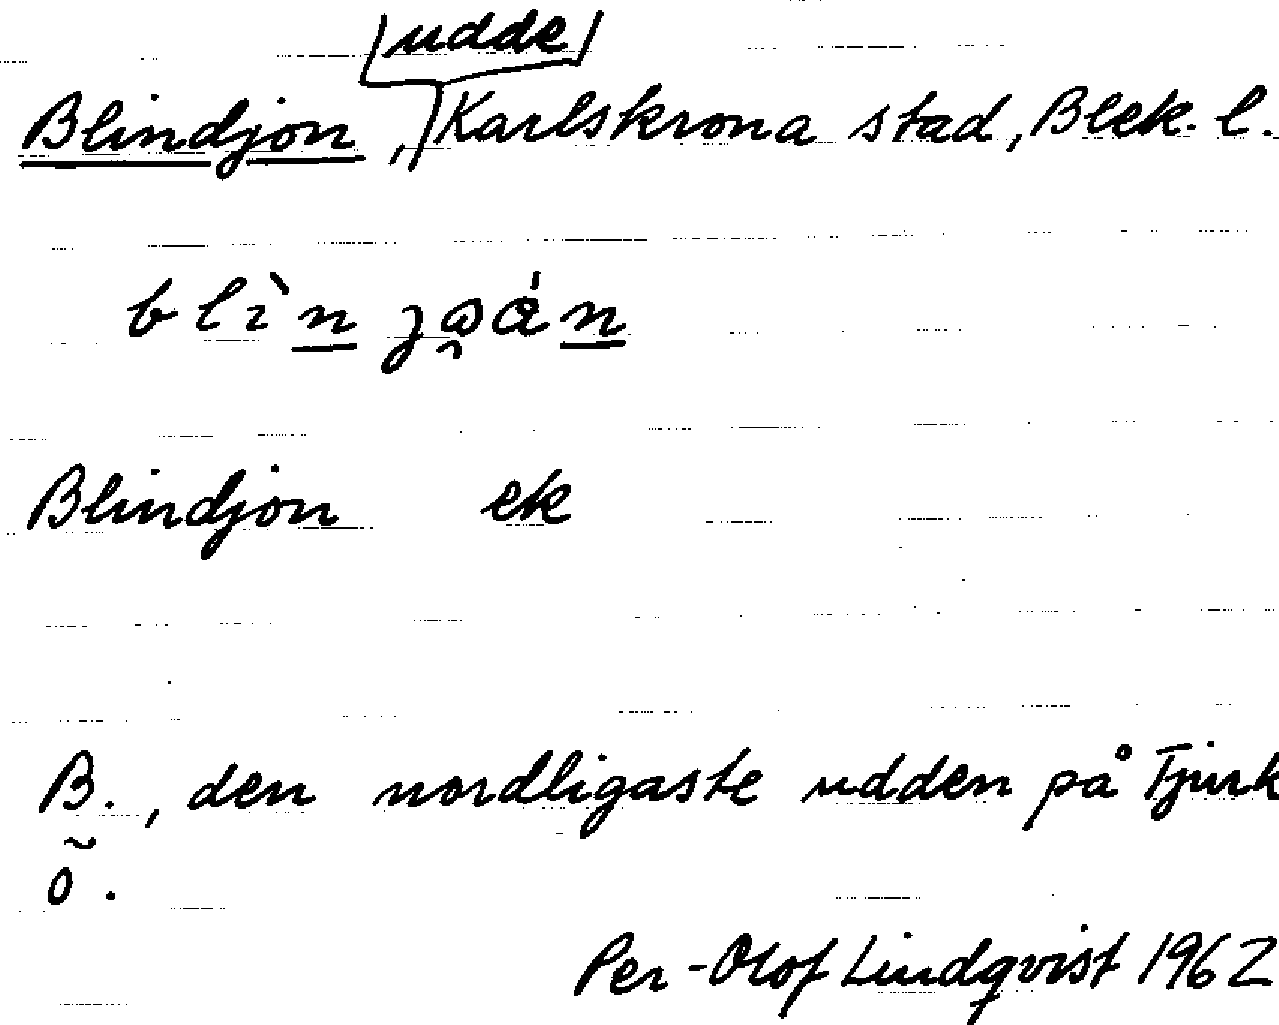 udde
Blindjon, Karlskrona stad, Blek. l.
Blindjon ek
B., den nordligaste udden på Tjurk
ö.
Per-Olof Lindqvist 1962